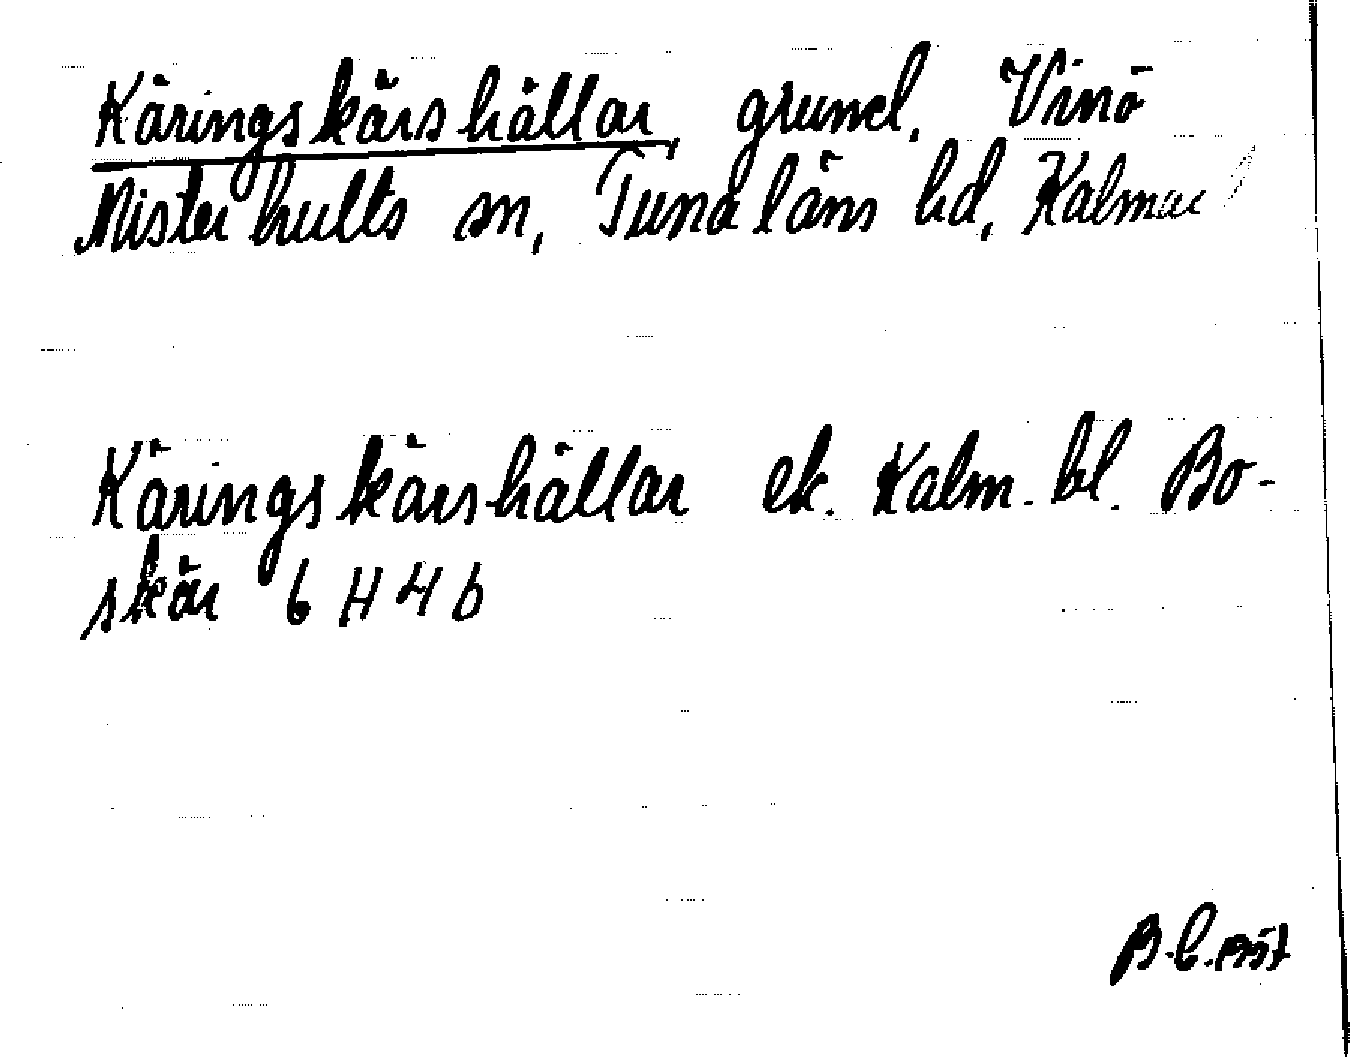 Käringskärshällar, grund, Vinö
Misterhults sn, Tunaläns hd, Kalmar l
Käringskärshällar ek. Kalm. bl. Bo-
skär 6 H 4 b
B.C. 1957